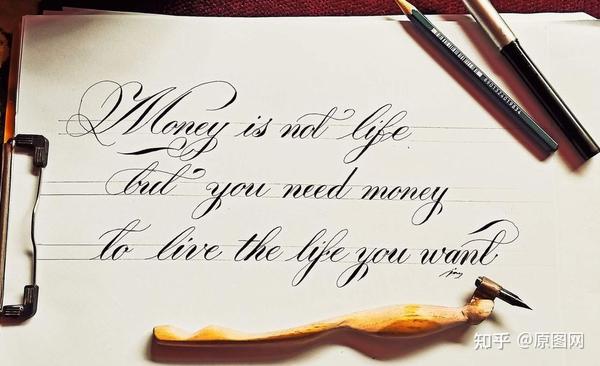 Money is not life
but you need money
to live the life you want
知乎 @原图网